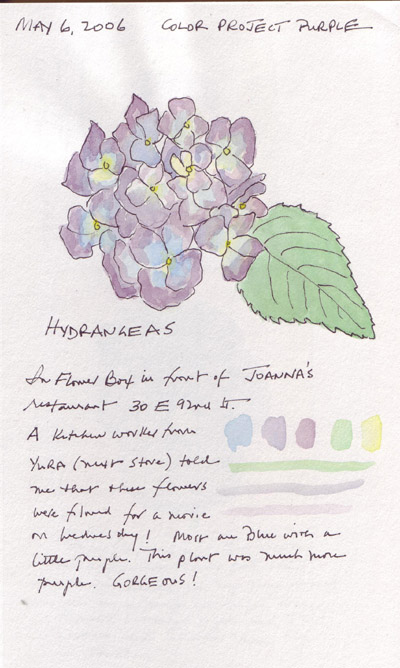 MAY 6, 2006 COLOR PROJECT PURPLE
HYDRANGEAS
In Flower Box in front of JOANNA'S
restaurant 30 E 92nd St.
A kitchen worker from
YURA (next store) told
me that these flowers
were filmed for a movie
on Wednesday! Most are Blue with a
little purple. This plant was much more
purple. GORGEOUS!